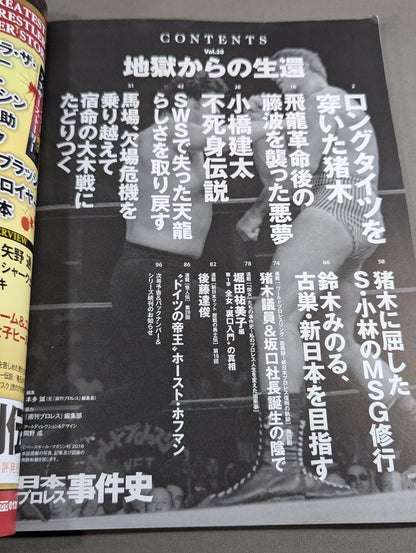 CONTENTS
Vol.26
地獄からの生還
2
ロングタイツを
穿いた猪木
16
飛龍革命後の
藤波を襲った悪夢
28
小橋建太
不死身伝説
42
SWSで失った天龍
らしさを取り戻す
51
馬場、欠場危機を
乗り越えて
宿命の大木戦に
たどりつく
58
猪木に屈した
S・小林のMSG修行
66
鈴木みのる、
古巣・新日本を目指す
74
猪木議員&坂口社長誕生の陰で
78
堀田祐美子編
全女“裏口入門”の真相
82
後藤達俊
86
“ドイツの帝王”ホースト・ホフマン
96
次号予告&バックナンバー&
シリーズ続刊のお知らせ
「週刊プロレス」編集部
アートディレクション&デザイン
間野 成
日本
プロレス
事件史